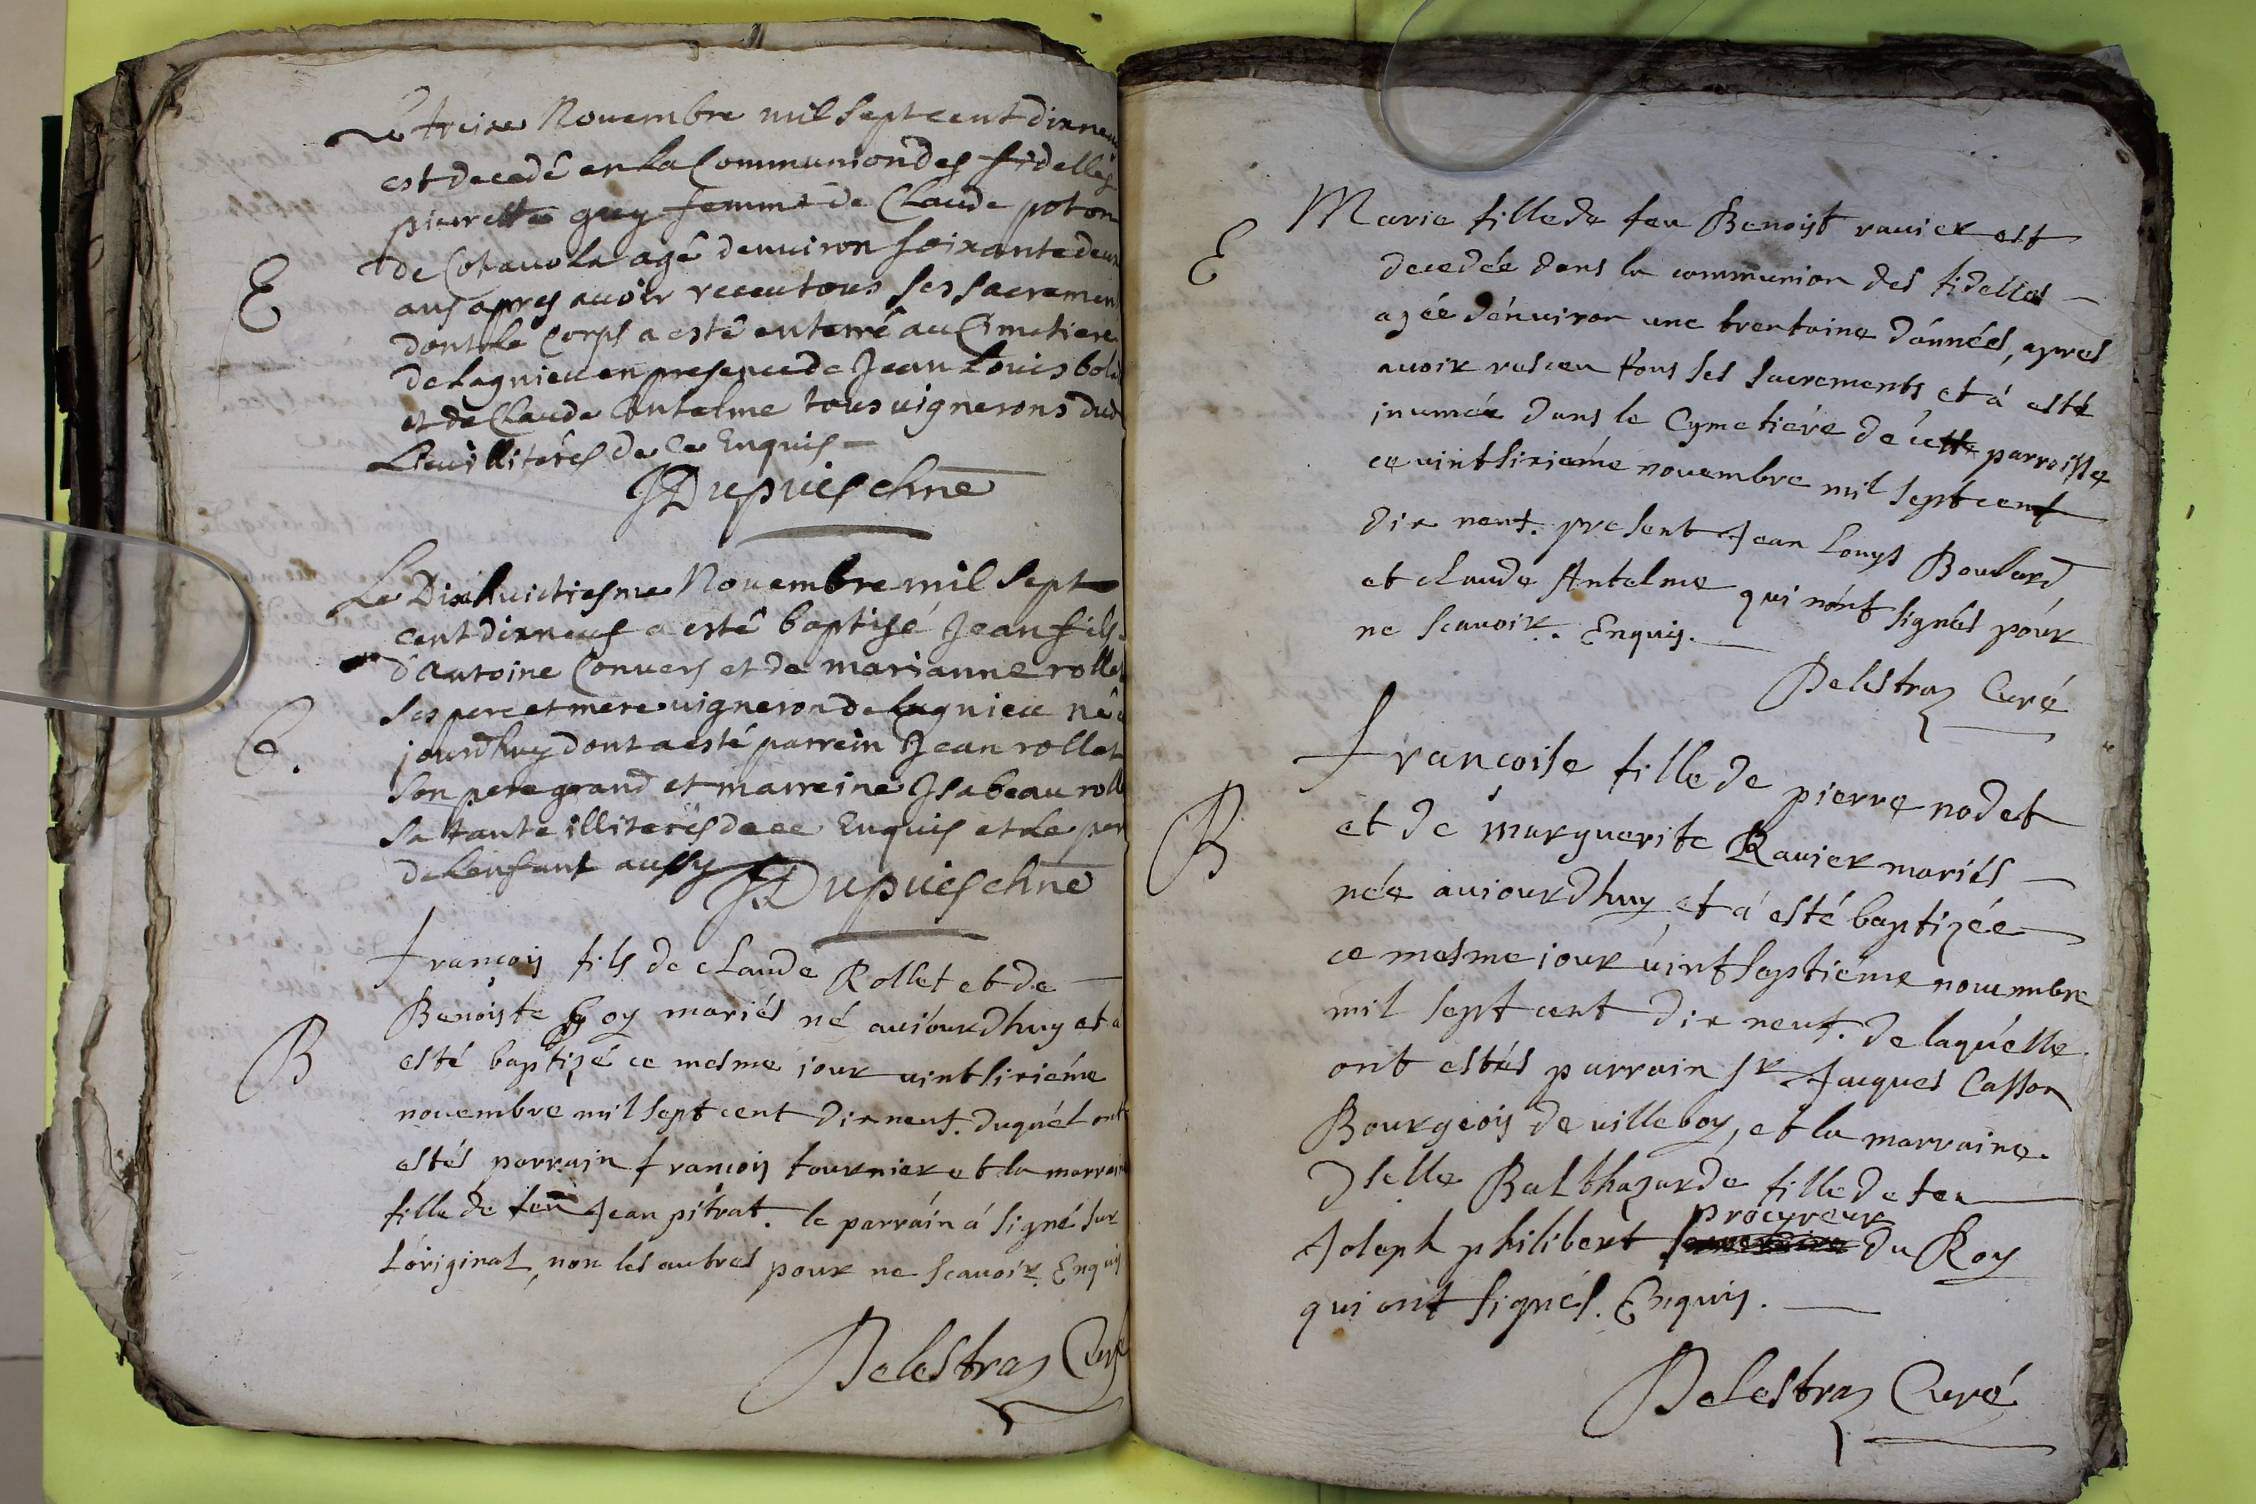 Le treize Novembre mil sept cent dixneuf
est decedé en la Communion des fidelles
pierrette guy femme de Claude poton
E
de Chavola agé denviron soixante deux
ans apres avoir receu tous ses sacremen
dont le Corps a esté enterré au Cimetiere
de Lagnieu en presence de Jean Louis bola
et de Claude Antelme tous vignerons dud
Lieu illiterés de ce Enquis
JDupuis chne
Le Dix huictiesme Novembre mil sept
cent dixneuf a esté baptisé Jean fils
d'antoine Convers et de marianne rollet
ses pere et mere vigneron de Lagnieu né c
B.
jourdhuy dont a esté parrein Jean rollet
son pere grand et marreine Isabeau roll
sa tante illiterés de ce Enquis et Le per
de Lenfant aussy JDupuis chne
françois fils de claude Rollet et de
Benoiste goy mariés né aujourdhuy et a
B
esté baptizé ce mesme jour vintsixiéme
novembre mil sept cent dixneuf. duquél ont
estés parrain françois tournier et la marrain
fille de feu Jean pitrat. le parráin á signé sur
l'original, non les autres pour ne scavoir. Enquis
Delestraz Curé
Marie fille de feu Benoist ravier est
E
decedée dans la communion des fidelles
agée dénviron une trentaine dánnées, apres
avoir resceu tous ses sacrements et á esté
inumée dans le Cymetiére de cette parroisse
ce vintsixiéme novembre mil sept cent
dix neuf. present Jean Louys Boulard
et claude Antelme qui n'ont signés pour
ne scavoir. Enquis.
Delestraz Curé
françoise fille de pierre nodet
et de marguerite Ravier mariés
B
née aujourdhuy et á esté baptizée
ce mesme jour vintseptiéme novembre
mil sept cent dix neuf. de laquélle
ont estés parrain sr Jacques Casson
Bourgeois de villeboy, et la marraine
dlelle Balthazarde fille de feu
procureur
Joseph philibert du Roy
qui ont signés. Enquis.
Delestraz Curé